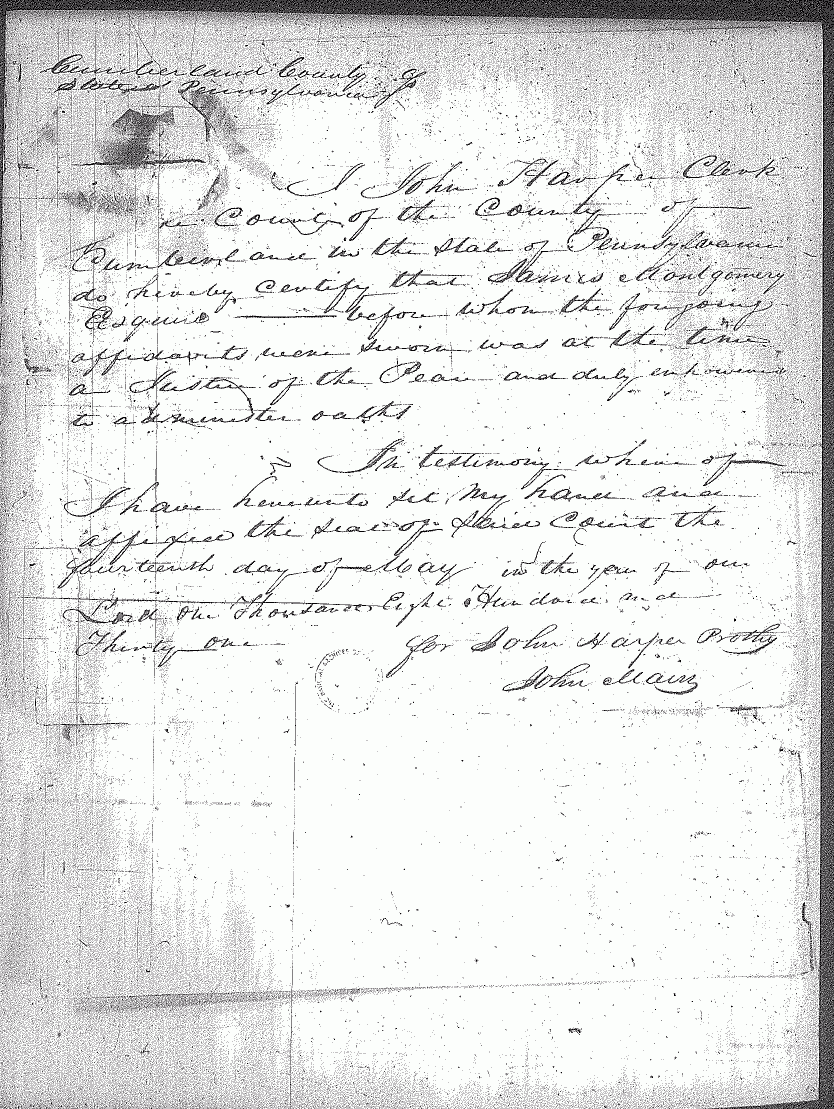 Cumberland County ss
State of Pennsylvania
I John Harper Clerk
County of the County of
Cumberland in the State of Pennsylvania
do hereby certify that James Montgomery
Esquire before whom the forgoing
affidavits were sworn was at the time
a Justice of the Peace and duly empowered
to administer oaths
In testimony where of
I have hereunto set my hand and
affixed the seal of said Court the
fourteenth day of May in the year of our
Lord One Thousand Eight Hundred and
Thirty one
for John Harper Prothy
John Main